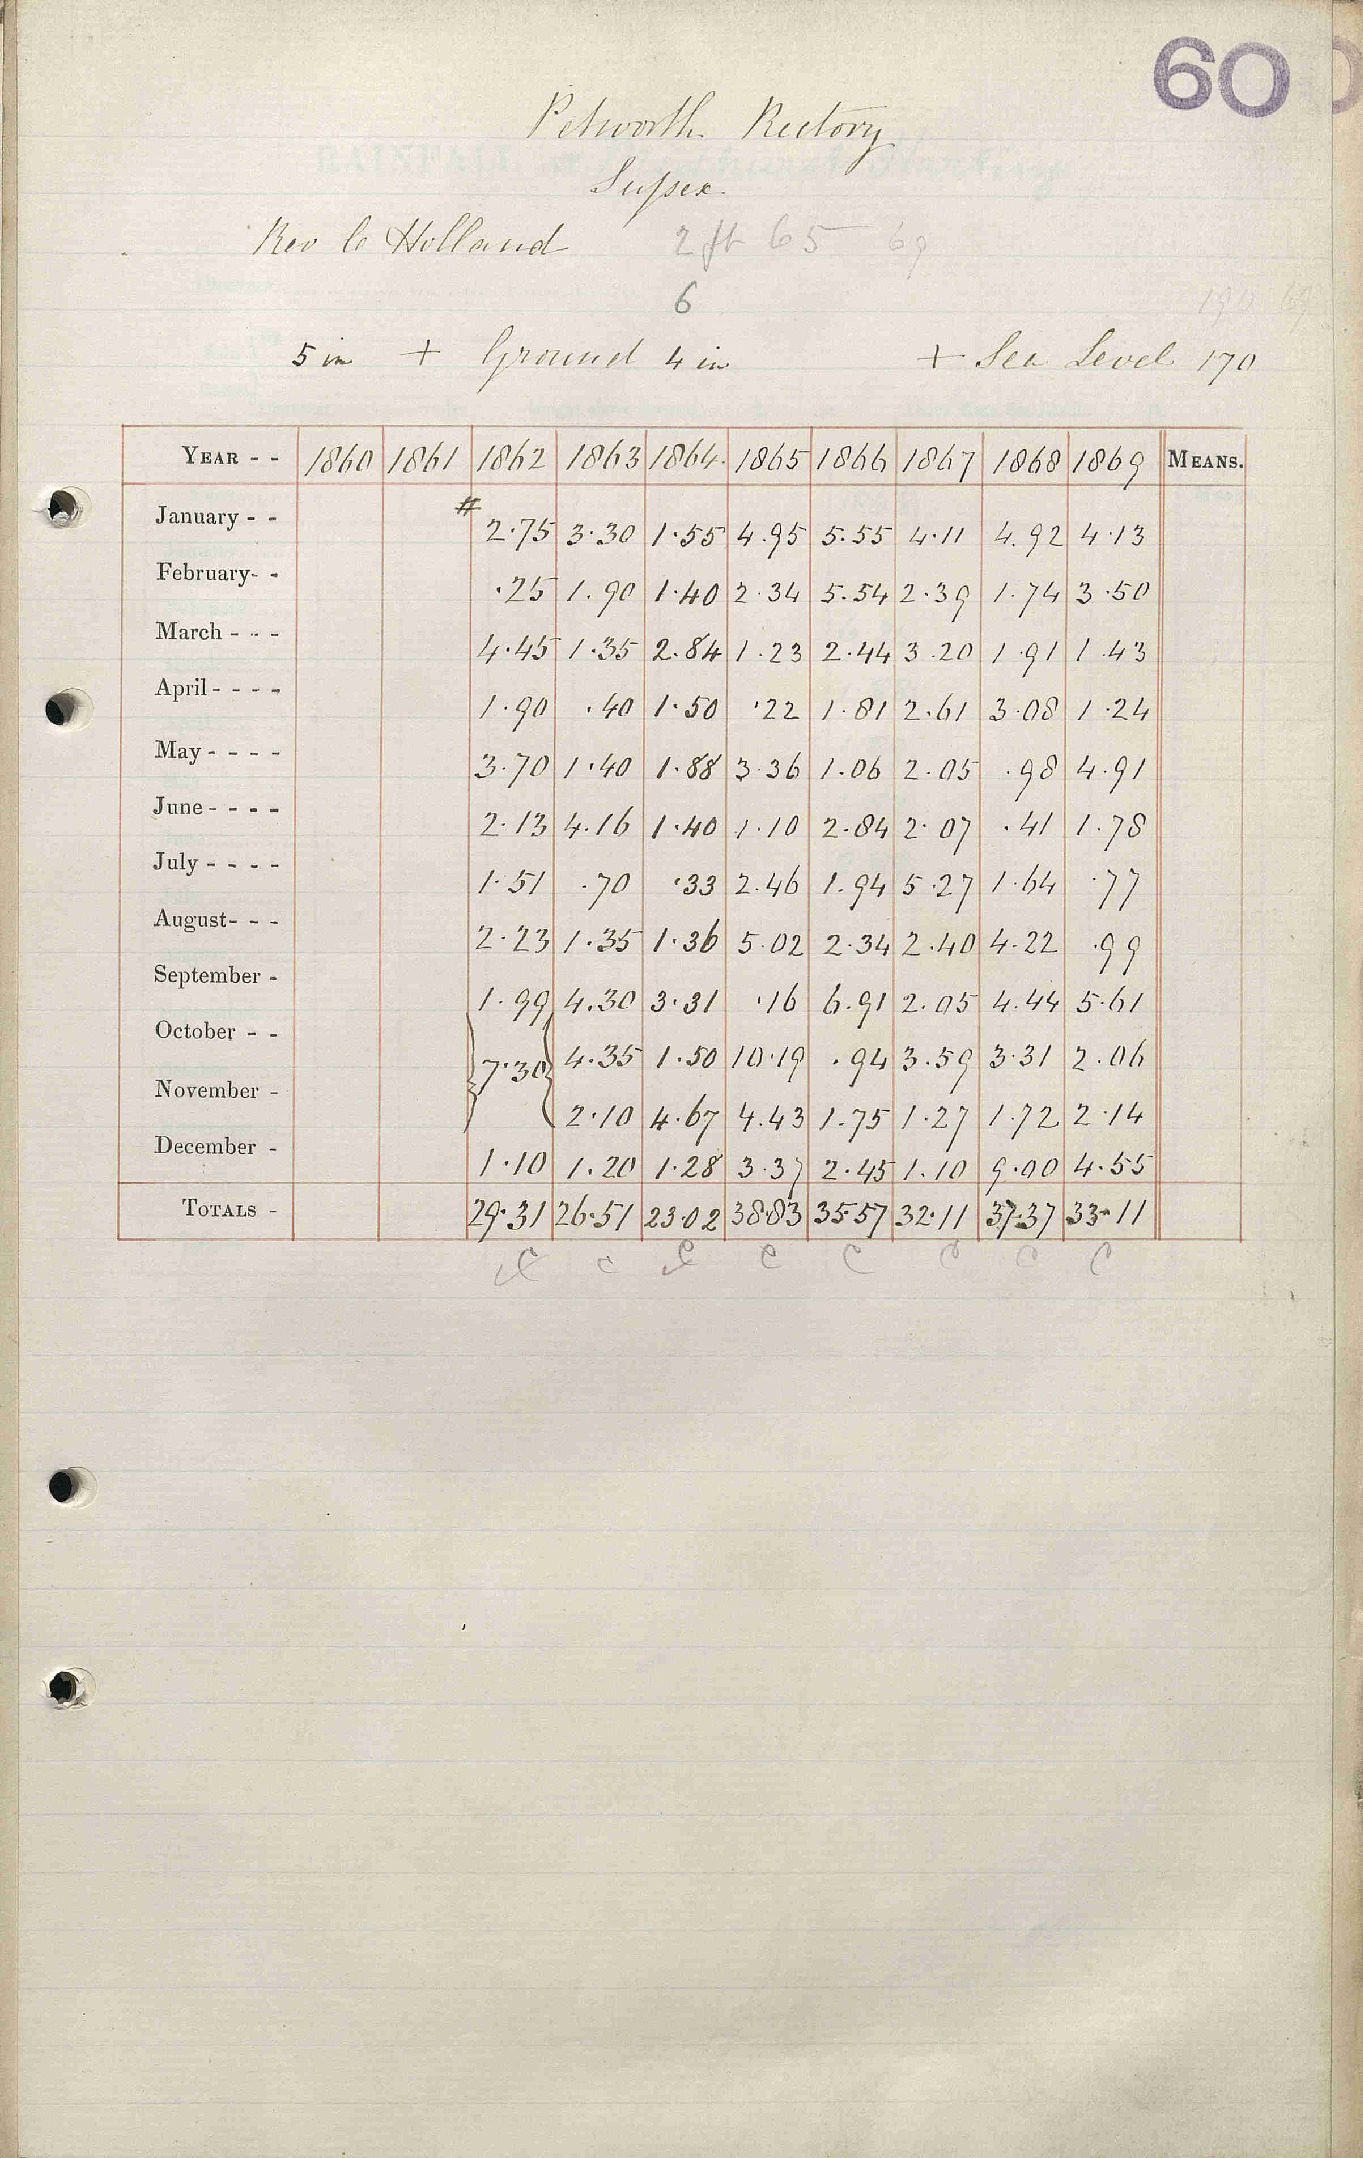 60
Petworth Rectory
Sussex
Rev C Holland 2 ft 65 69
6
190 69
5 in + Ground 4 in + Sea Level 170
YEAR - - 1860 1861 1862 1863 1864. 1865 1866 1867 1868 1869 MEANS.
January - - # 2.75 3.30 1.55 4.95 5.55 4.11 4.92 4.13
February- - .25 1.90 1.40 2.34 5.54 2.39 1.74 3.50
March - - - 4.45 1.35 2.84 1.23 2.44 3.20 1.91 1.43
April - - - - 1.90 .40 1.50 .22 1.81 2.61 3.08 1.24
May - - - - 3.70 1.40 1.88 3.36 1.06 2.05 .98 4.91
June - - - - 2.13 4.16 1.40 1.10 2.84 2.07 .41 1.78
July - - - - 1.51 .70 .33 2.46 1.94 5.27 1.64 .77
August- - - 2.23 1.35 1.36 5.02 2.34 2.40 4.22 .99
September - 1.99 4.30 3.31 .16 6.91 2.05 4.44 5.61
October - - } 7.30 { 4.35 1.50 10.19 .94 3.59 3.31 2.06
November - 2.10 4.67 4.43 1.75 1.27 1.72 2.14
December - 1.10 1.20 1.28 3.37 2.45 1.10 9.00 4.55
TOTALS - 29.31 26.51 23.02 38.83 35.57 32.11 37.37 33.11
C C C C C C C C